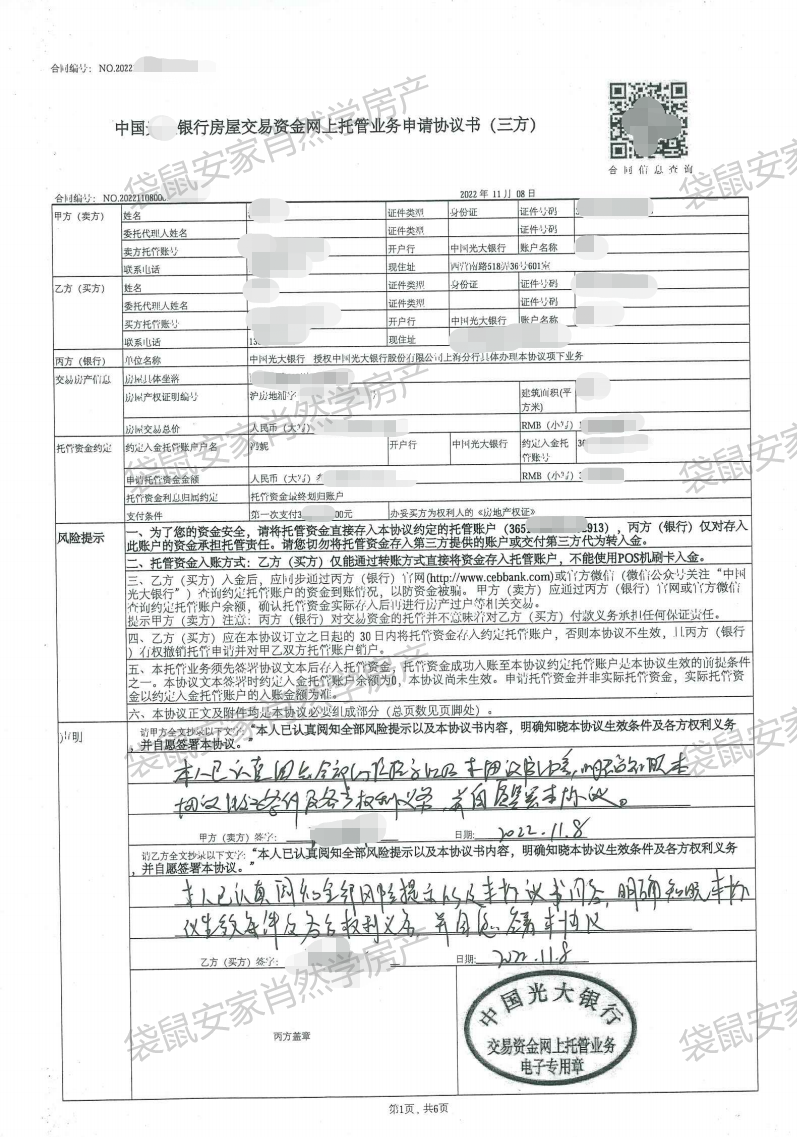 合同编号: NO.2022
中国光 银行房屋交易资金网上托管业务申请协议书（三方）
合同信息查询
合同编号: NO.202211080
2022年11月08日
甲方（卖方） 姓名 证件类型 身份证 证件号码
委托代理人姓名 证件类型 证件号码
卖方托管账号 开户行 中国光大银行 账户名称
联系电话 现住址 西营南路518弄36号601室
乙方（买方） 姓名 证件类型 身份证 证件号码
委托代理人姓名 证件类型 证件号码
买方托管账号 开户行 中国光大银行 账户名称
联系电话 13 现住址
丙方（银行） 单位名称 中国光大银行 授权中国光大银行股份有限公司上海分行具体办理本协议项下业务
交易房产信息 房屋具体坐落
房屋产权证明编号 沪房地浦字 建筑面积(平方米)
房屋交易总价 人民币（大写） RMB（小写）
托管资金约定 约定入金托管账户户名 开户行 中国光大银行 约定入金托管账号 36
申请托管资金金额 人民币（大写） RMB（小写）
托管资金利息归属约定 托管资金最终划归账户
支付条件 第一次支付3 00元 办妥买方为权利人的《房地产权证》
风险提示
一、为了您的资金安全，请将托管资金直接存入本协议约定的托管账户（365 913），丙方（银行）仅对存入
此账户的资金承担托管责任。请您切勿将托管资金存入第三方提供的账户或交付第三方代为转入金。
二、托管资金入账方式：乙方（买方）仅能通过转账方式直接将资金存入托管账户，不能使用POS机刷卡入金。
三、乙方（买方）入金后，应同步通过丙方（银行）官网(http://www.cebbank.com)或官方微信（微信公众号关注“中国
光大银行”）查询约定托管账户的资金到账情况，以防资金被骗。甲方（卖方）应通过丙方（银行）官网或官方微信
查询约定托管账户余额，确认托管资金实际存入后再进行房产过户等相关交易。
提示甲方（卖方）注意：丙方（银行）对交易资金的托管并不意味着对乙方（买方）付款义务承担任何保证责任。
四、乙方（买方）应在本协议订立之日起的 30 日内将托管资金存入约定托管账户，否则本协议不生效，且丙方（银行
）有权撤销托管申请并对甲乙双方托管账户销户。
五、本托管业务须先签署协议文本后存入托管资金，托管资金成功入账至本协议约定托管账户是本协议生效的前提条件
之一。本协议文本签署时约定入金托管账户余额为0，本协议尚未生效。申请托管资金并非实际托管资金，实际托管资
金以约定入金托管账户的入账金额为准。
六、本协议正文及附件均是本协议必要组成部分（总页数见页脚处）。
声明
请甲方全文抄录以下文字：“本人已认真阅知全部风险提示以及本协议书内容，明确知晓本协议生效条件及各方权利义务
，并自愿签署本协议。”
本人已认真阅知全部风险提示以及本协议书内容，明确知晓本
协议生效条件及各方权利义务，并自愿签署本协议。
甲方（卖方）签字： 日期: 2022.11.8
请乙方全文抄录以下文字：“本人已认真阅知全部风险提示以及本协议书内容，明确知晓本协议生效条件及各方权利义务
，并自愿签署本协议。”
本人已认真阅知全部风险提示以及本协议书内容，明确知晓本协
议生效条件及各方权利义务，并自愿签署本协议
乙方（买方）签字： 日期: 2022.11.8
丙方盖章
中国光大银行
交易资金网上托管业务
电子专用章
第1页，共6页
袋鼠安家肖然学房产